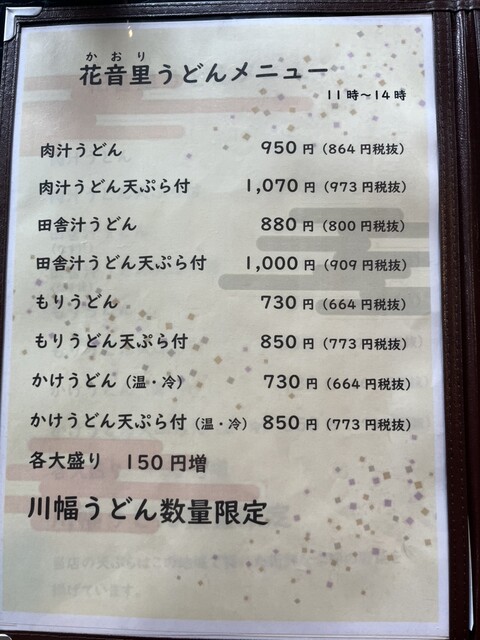 かおり
花音里うどんメニュー
11時～14時
肉汁うどん 950円（864円税抜）
肉汁うどん天ぷら付 1,070円（973円税抜）
田舎汁うどん 880円（800円税抜）
田舎汁うどん天ぷら付 1,000円（909円税抜）
もりうどん 730円（664円税抜）
もりうどん天ぷら付 850円（773円税抜）
かけうどん（温・冷） 730円（664円税抜）
かけうどん天ぷら付（温・冷） 850円（773円税抜）
各大盛り 150円増
川幅うどん数量限定